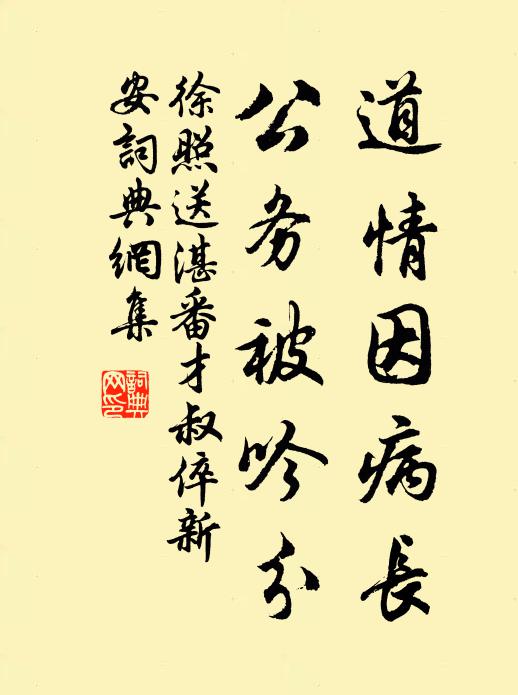 道情因病長
公务被吟分
徐照送湛番才叔倅新
安詞典網集
詞典网印